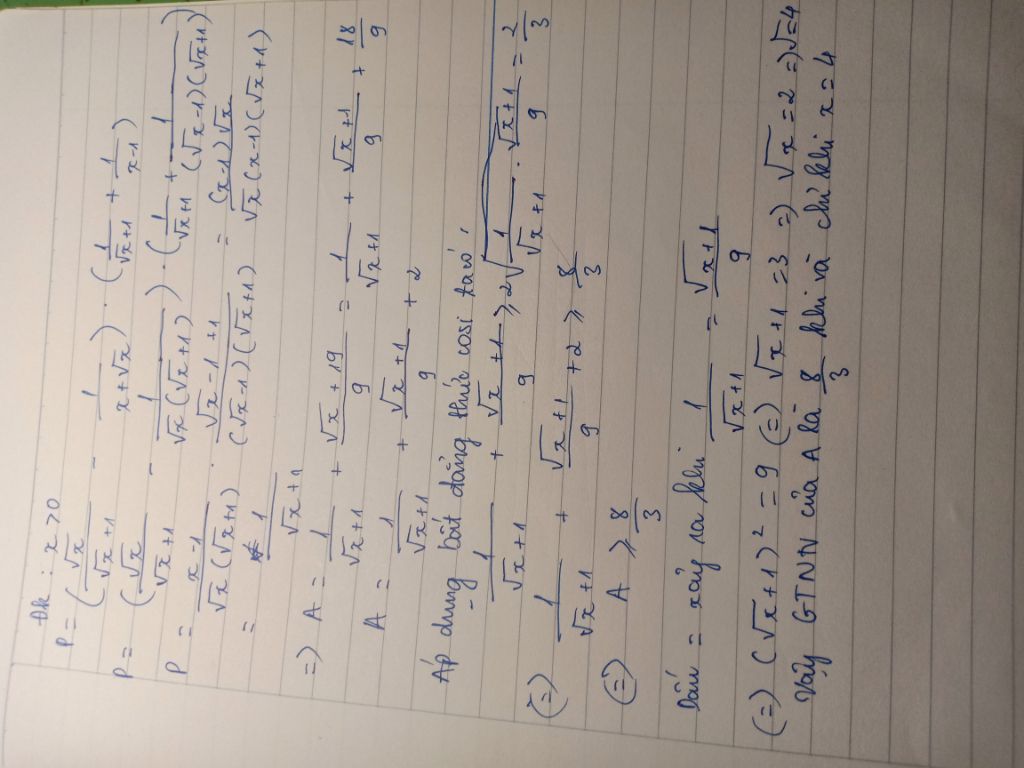 Đk : x>0
P = (√x/(√x+1) - 1/(x+√x)) . (1/(√x+1) + 1/(x-1))
P = (√x/(√x+1) - 1/(√x(√x+1))) . (1/(√x+1) + 1/((√x-1)(√x+1)))
P = (x-1)/(√x(√x+1)) . (√x-1+1)/((√x-1)(√x+1)) = ((x-1)√x)/(√x(x-1)(√x+1))
= 1/(√x+1)
=) A = 1/(√x+1) + (√x+19)/9 = 1/(√x+1) + (√x+1)/9 + 18/9
A = 1/(√x+1) + (√x+1)/9 + 2
Áp dụng bất đẳng thức cosi ta có
1/(√x+1) + (√x+1)/9 ≥ 2√(1/(√x+1) . (√x+1)/9) = 2/3
(=) 1/(√x+1) + (√x+1)/9 + 2 ≥ 8/3
(=) A ≥ 8/3
Dấu = xảy ra khi 1/(√x+1) = (√x+1)/9
(=) (√x+1)² = 9 (=) √x+1 = 3 =) √x = 2 =) √=4
Vậy GTNN của A là 8/3 khi và chỉ khi x = 4